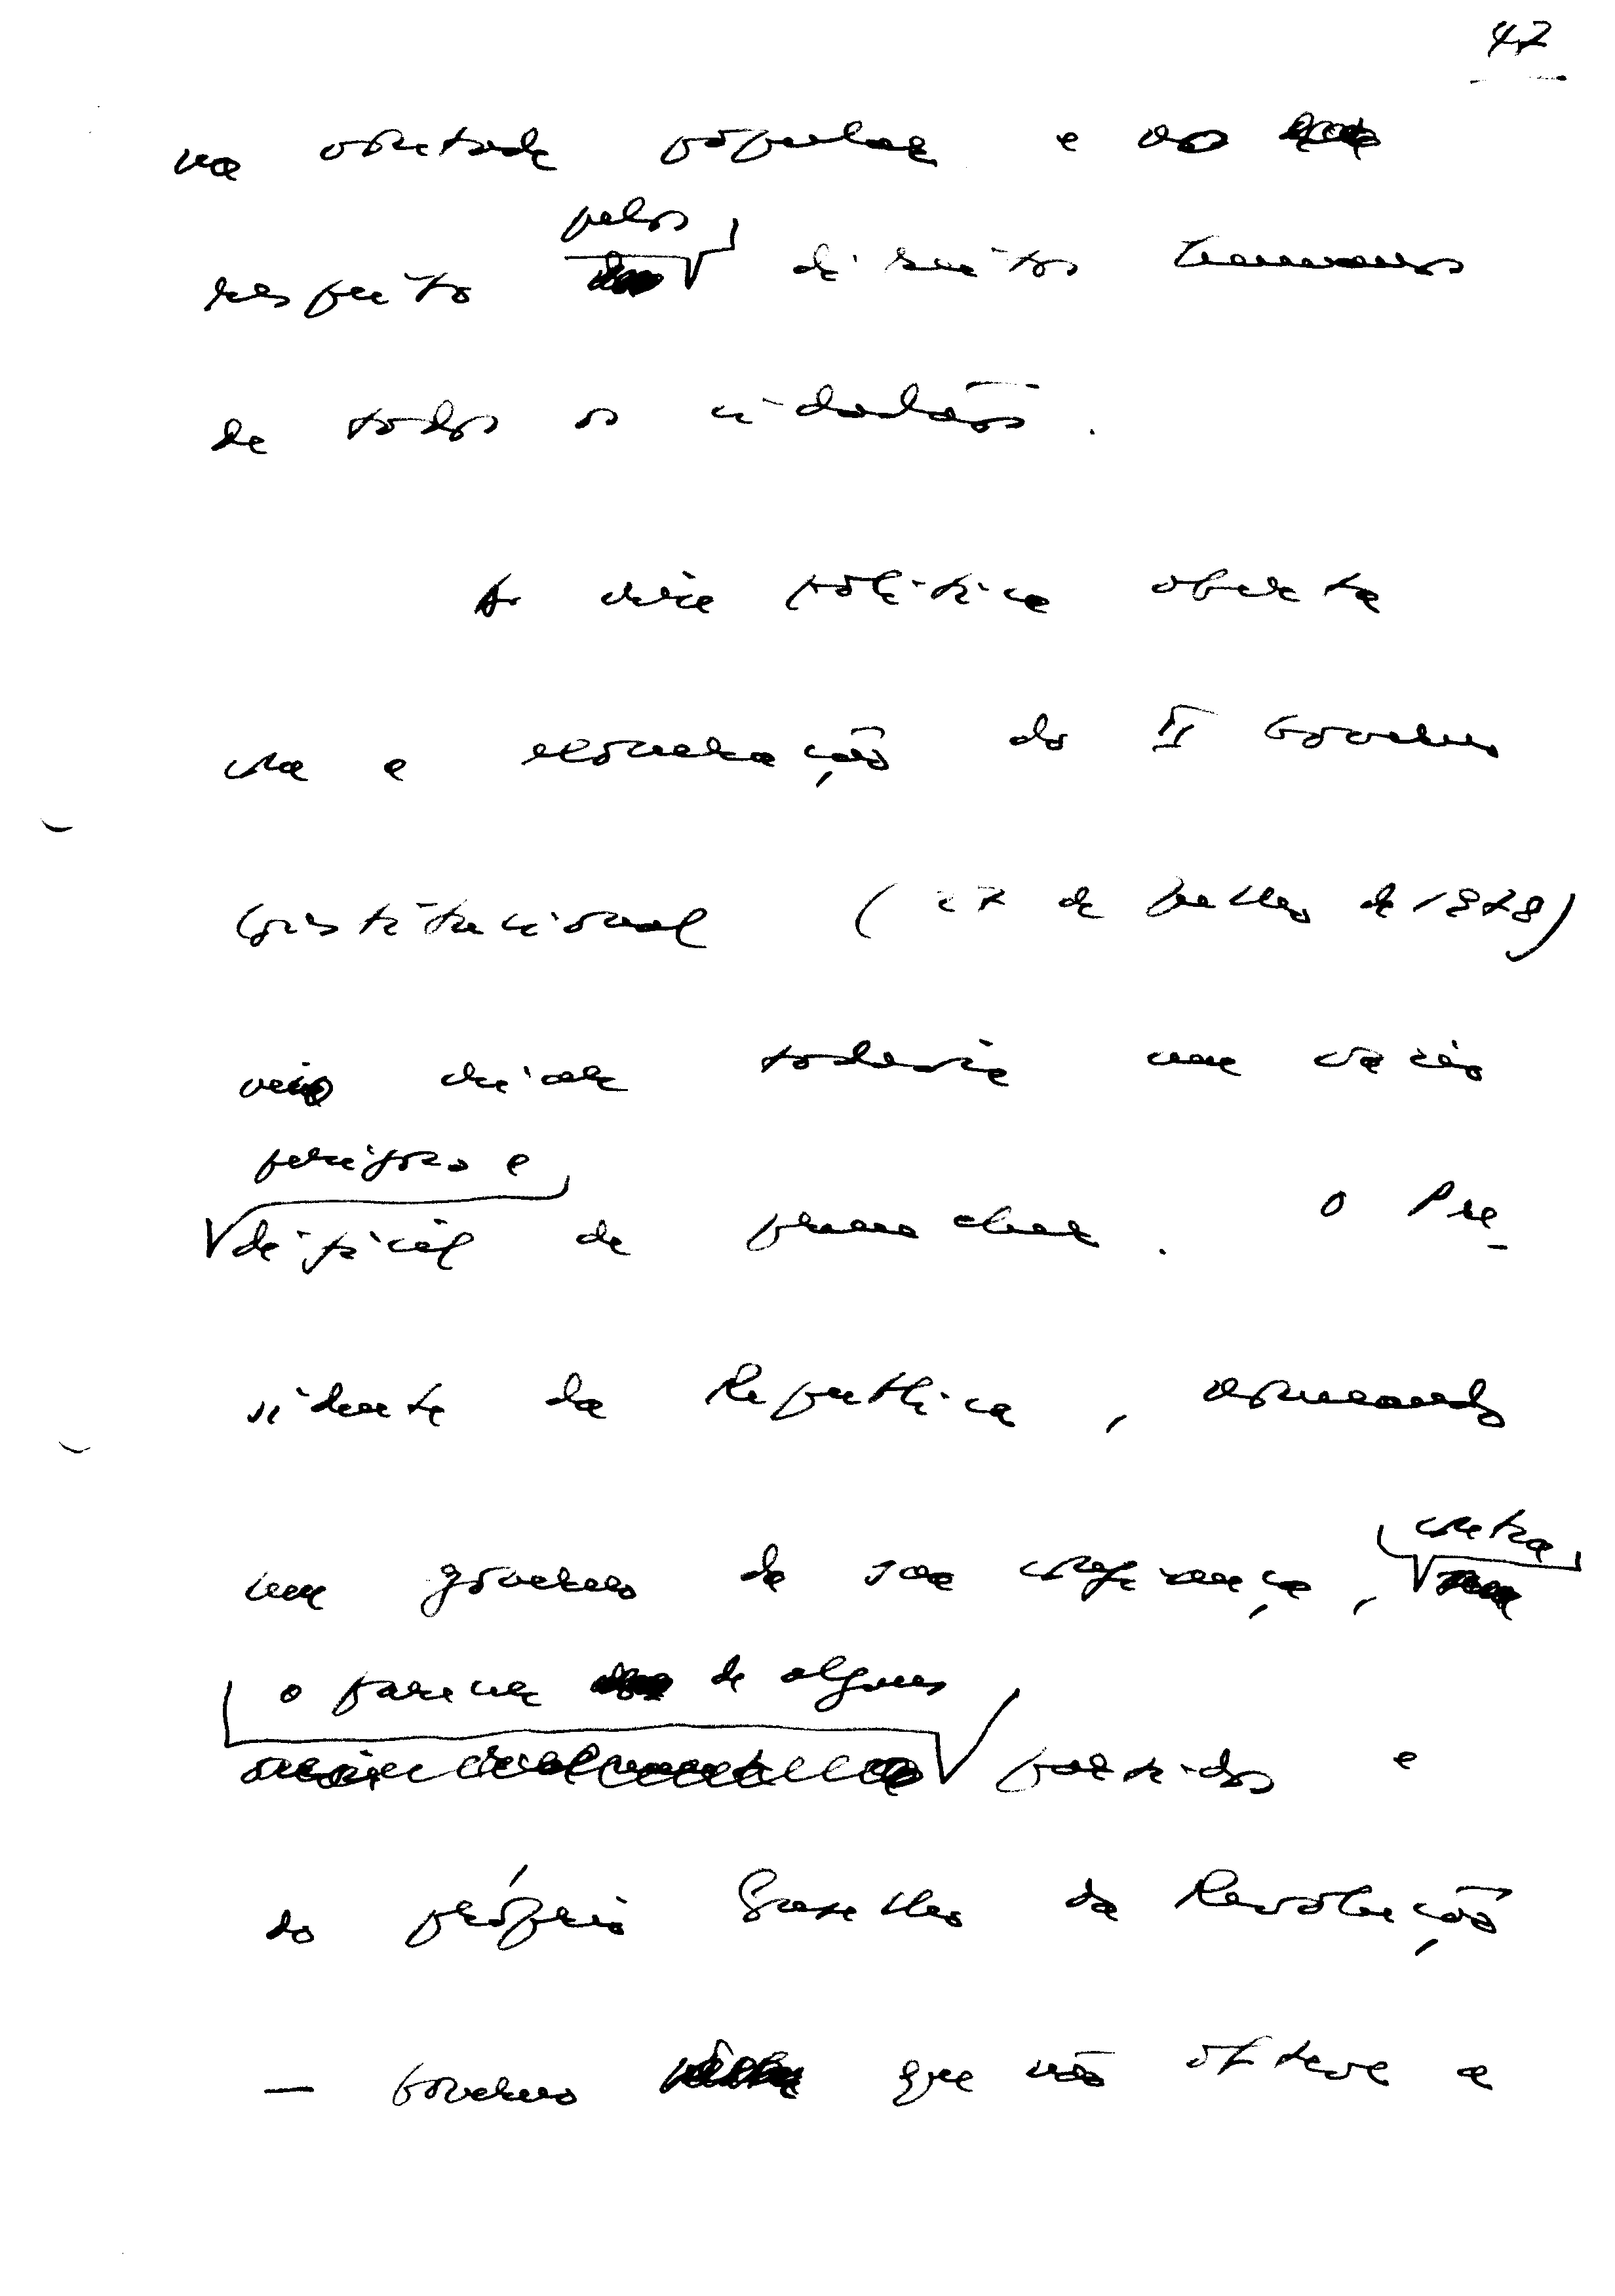 47
na vontade popular e no
pelos
respeito direitos humanos
de todos os cidadãos.
A crise política aberta
com a exoneração do II Governo
Constitucional (27 de Julho de 1978)
veio criar todavia um vazio
perigoso e
difícil de preencher. O Pre-
sidente da República, nomeando
um governo da sua confiança, contra
o parecer de alguns
partidos e
do próprio Conselho da Revolução
— Governo que não obteve a